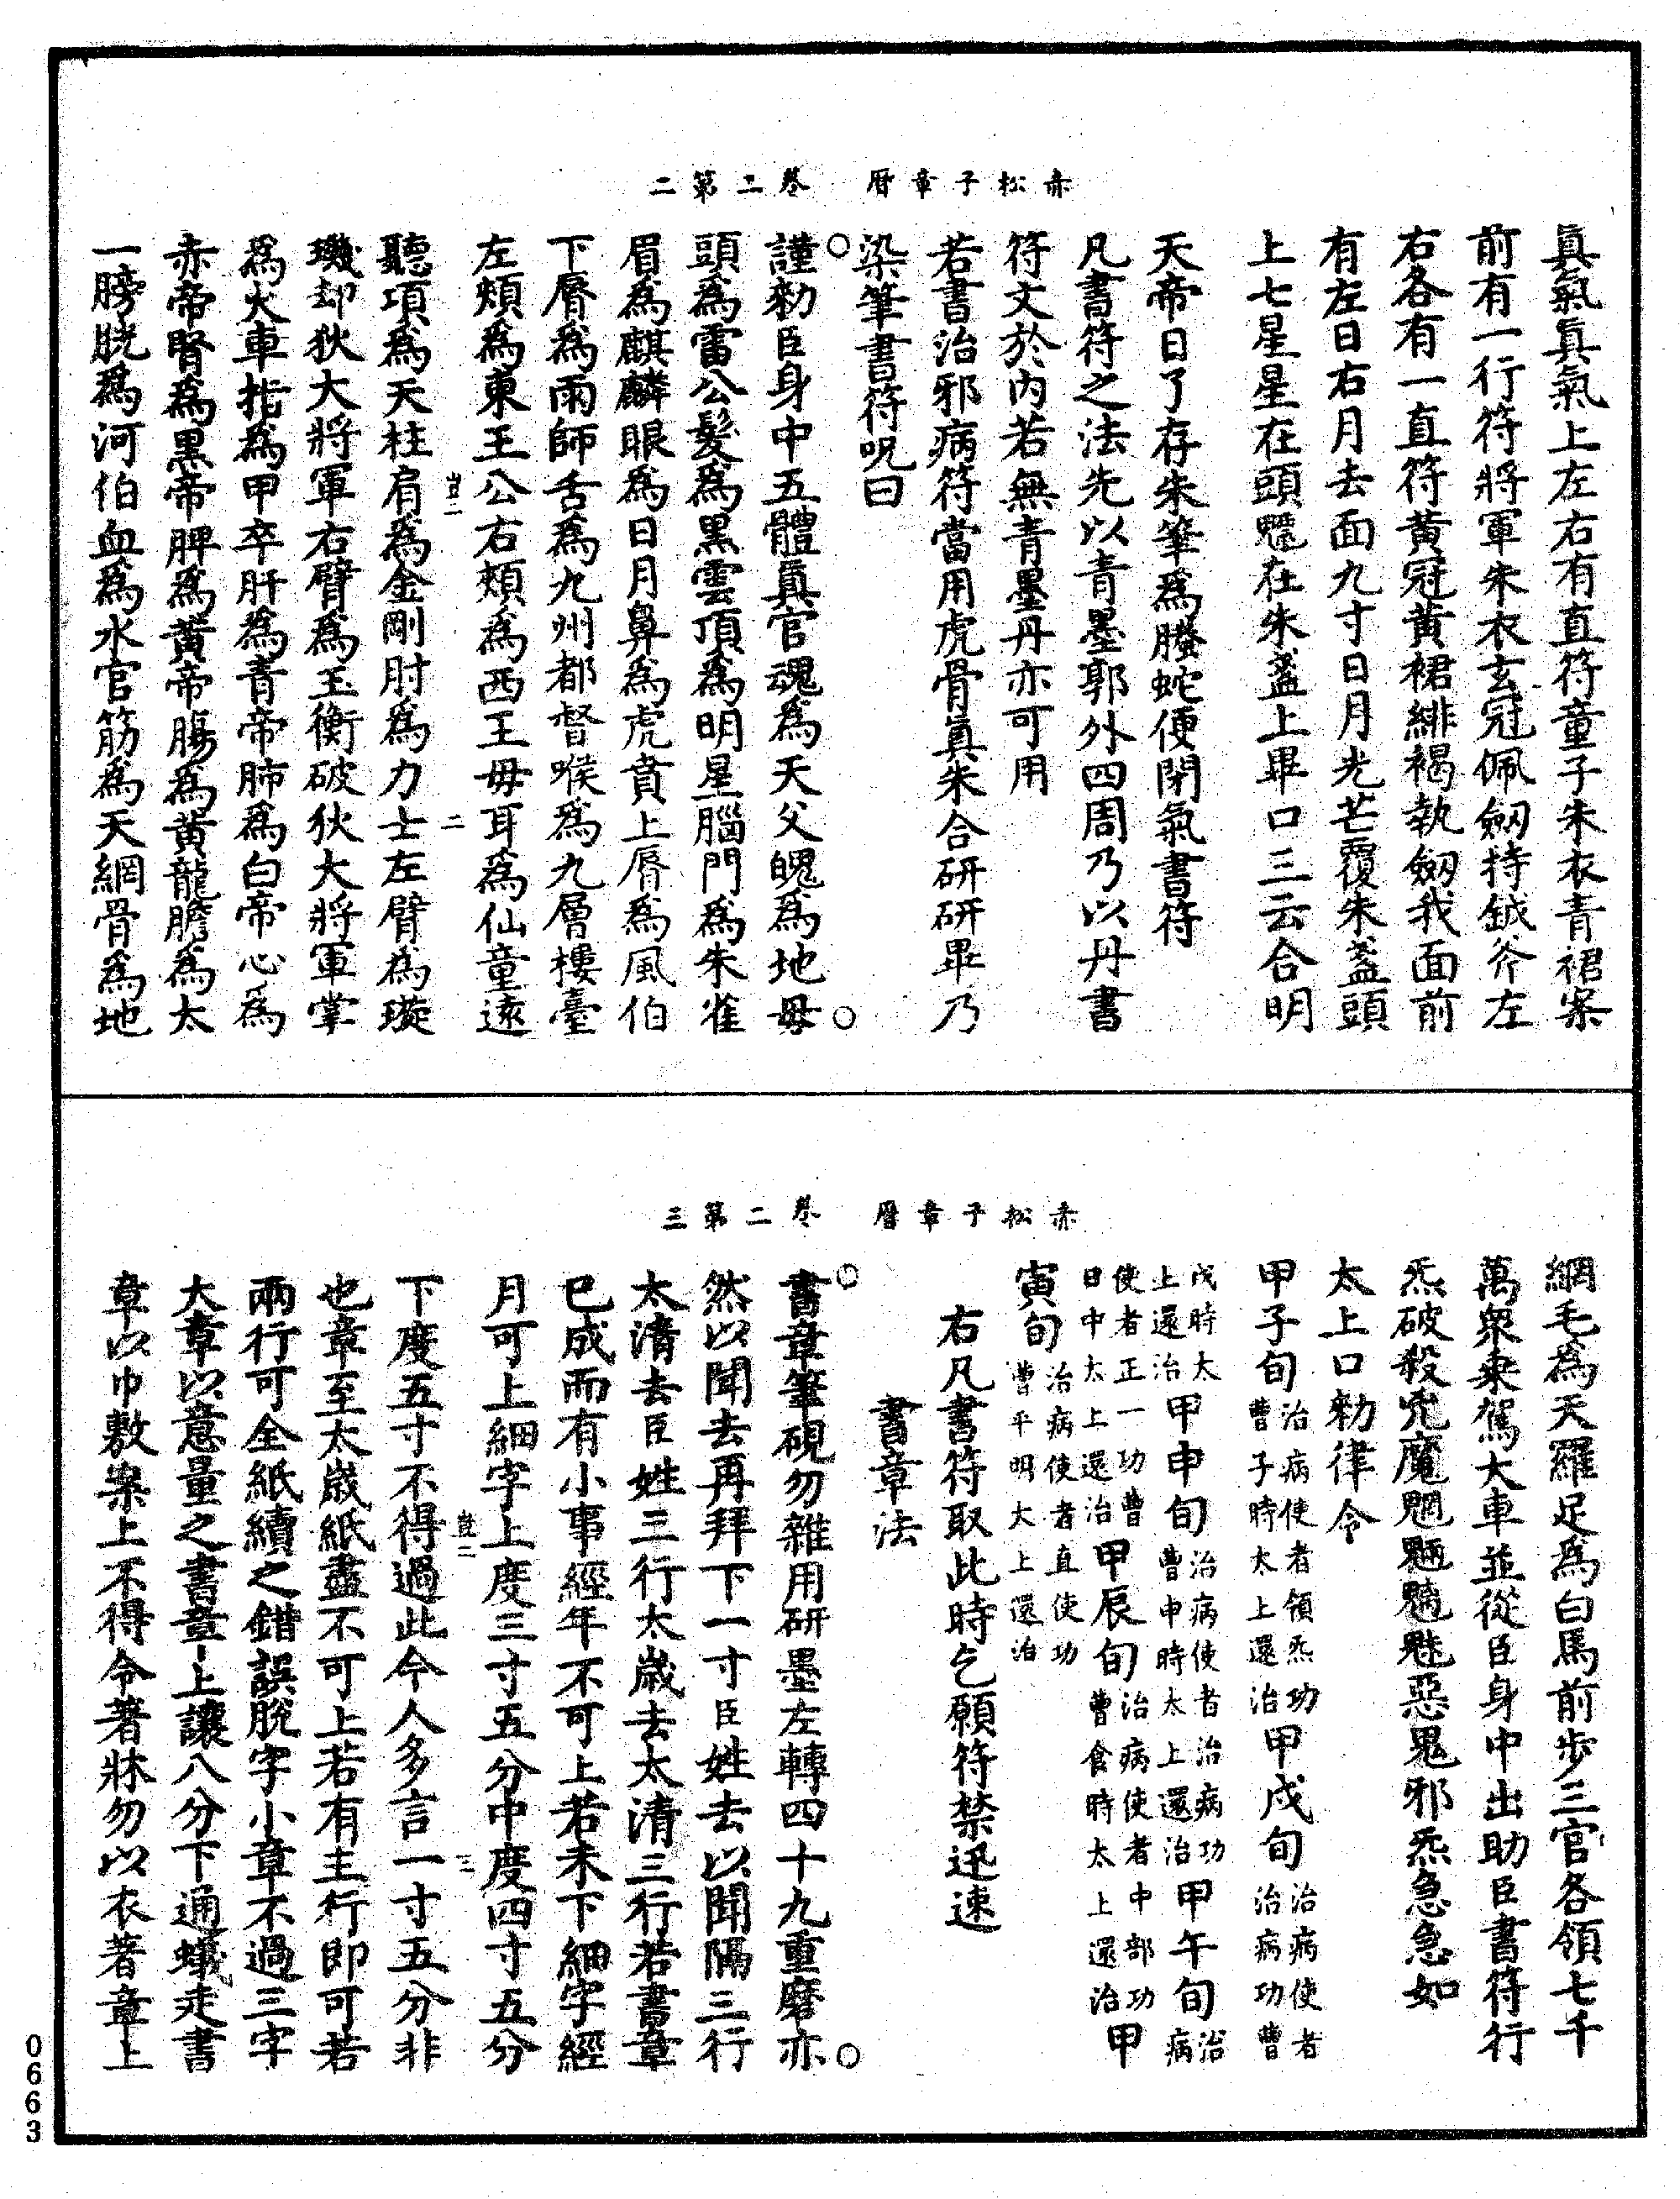 赤松子章曆　卷二第二
真氣真氣上左右有直符童子朱衣青裙案
前有一行符將軍朱衣玄冠佩劒持鉞斧左
右各有一直符黃冠黃裙緋褐執劒我面前
有左日右月去面九寸日月光芒覆朱盞頭
上七星星在頭魒在朱盞上畢口三云合明
天帝日了存朱筆爲螣蛇便閉氣書符
凡書符之法先以青墨郭外四周乃以丹書
符文於內若無青墨丹亦可用
若書治邪病符當用虎骨真朱合研研畢乃
染筆書符呪曰
謹勑臣身中五體真官魂爲天父魄爲地母
頭爲雷公髮爲黑雲頂爲明星腦門爲朱雀
眉爲麒麟眼爲日月鼻爲虎賁上脣爲風伯
下脣爲雨師舌爲九州都督喉爲九層樓臺
左頰爲東王公右頰爲西王母耳爲仙童遠
豈二　二
聽項爲天柱肩爲金剛肘爲力士左臂爲璇
璣却狄大將軍右臂爲玉衡破狄大將軍掌
爲火車指爲甲卒肝爲青帝肺爲白帝心爲
赤帝腎爲黑帝脾爲黃帝腸爲黃龍膽爲太
一膀胱爲河伯血爲水官筋爲天綱骨爲地
赤松子章曆　卷二第三
網毛爲天羅足爲白馬前步三官各領七千
萬衆乗駕大車並從臣身中出助臣書符行
炁破殺兇魔魍魎魑魅惡鬼邪炁急急如
太上口勑律令
甲子旬治病使者領炁功曹子時太上還治甲戌旬治病使者治病功曹
戌時太上還治甲申旬治病使者治病功曹申時太上還治甲午旬治病
使者正一功曹日中太上還治甲辰旬治病使者中部功曹食時太上還治甲
寅旬治病使者直使功曹平明大上還治
右凡書符取此時乞願符禁迅速
書章法
書章筆硯勿雜用研墨左轉四十九重磨亦
然以聞去再拜下一寸臣姓去以聞隔三行
太清去臣姓三行太歲去太清三行若書章
已成而有小事經年不可上若未下細字經
月可上細字上度三寸五分中度四寸五分
豈二　三
下度五寸不得過此今人多言一寸五分非
也章至太歲紙盡不可上若有主行即可若
兩行可全紙續之錯誤脫字小章不過三字
大章以意量之書章上讓八分下通蟻走書
章以巾敷案上不得令著牀勿以衣著章上
0663